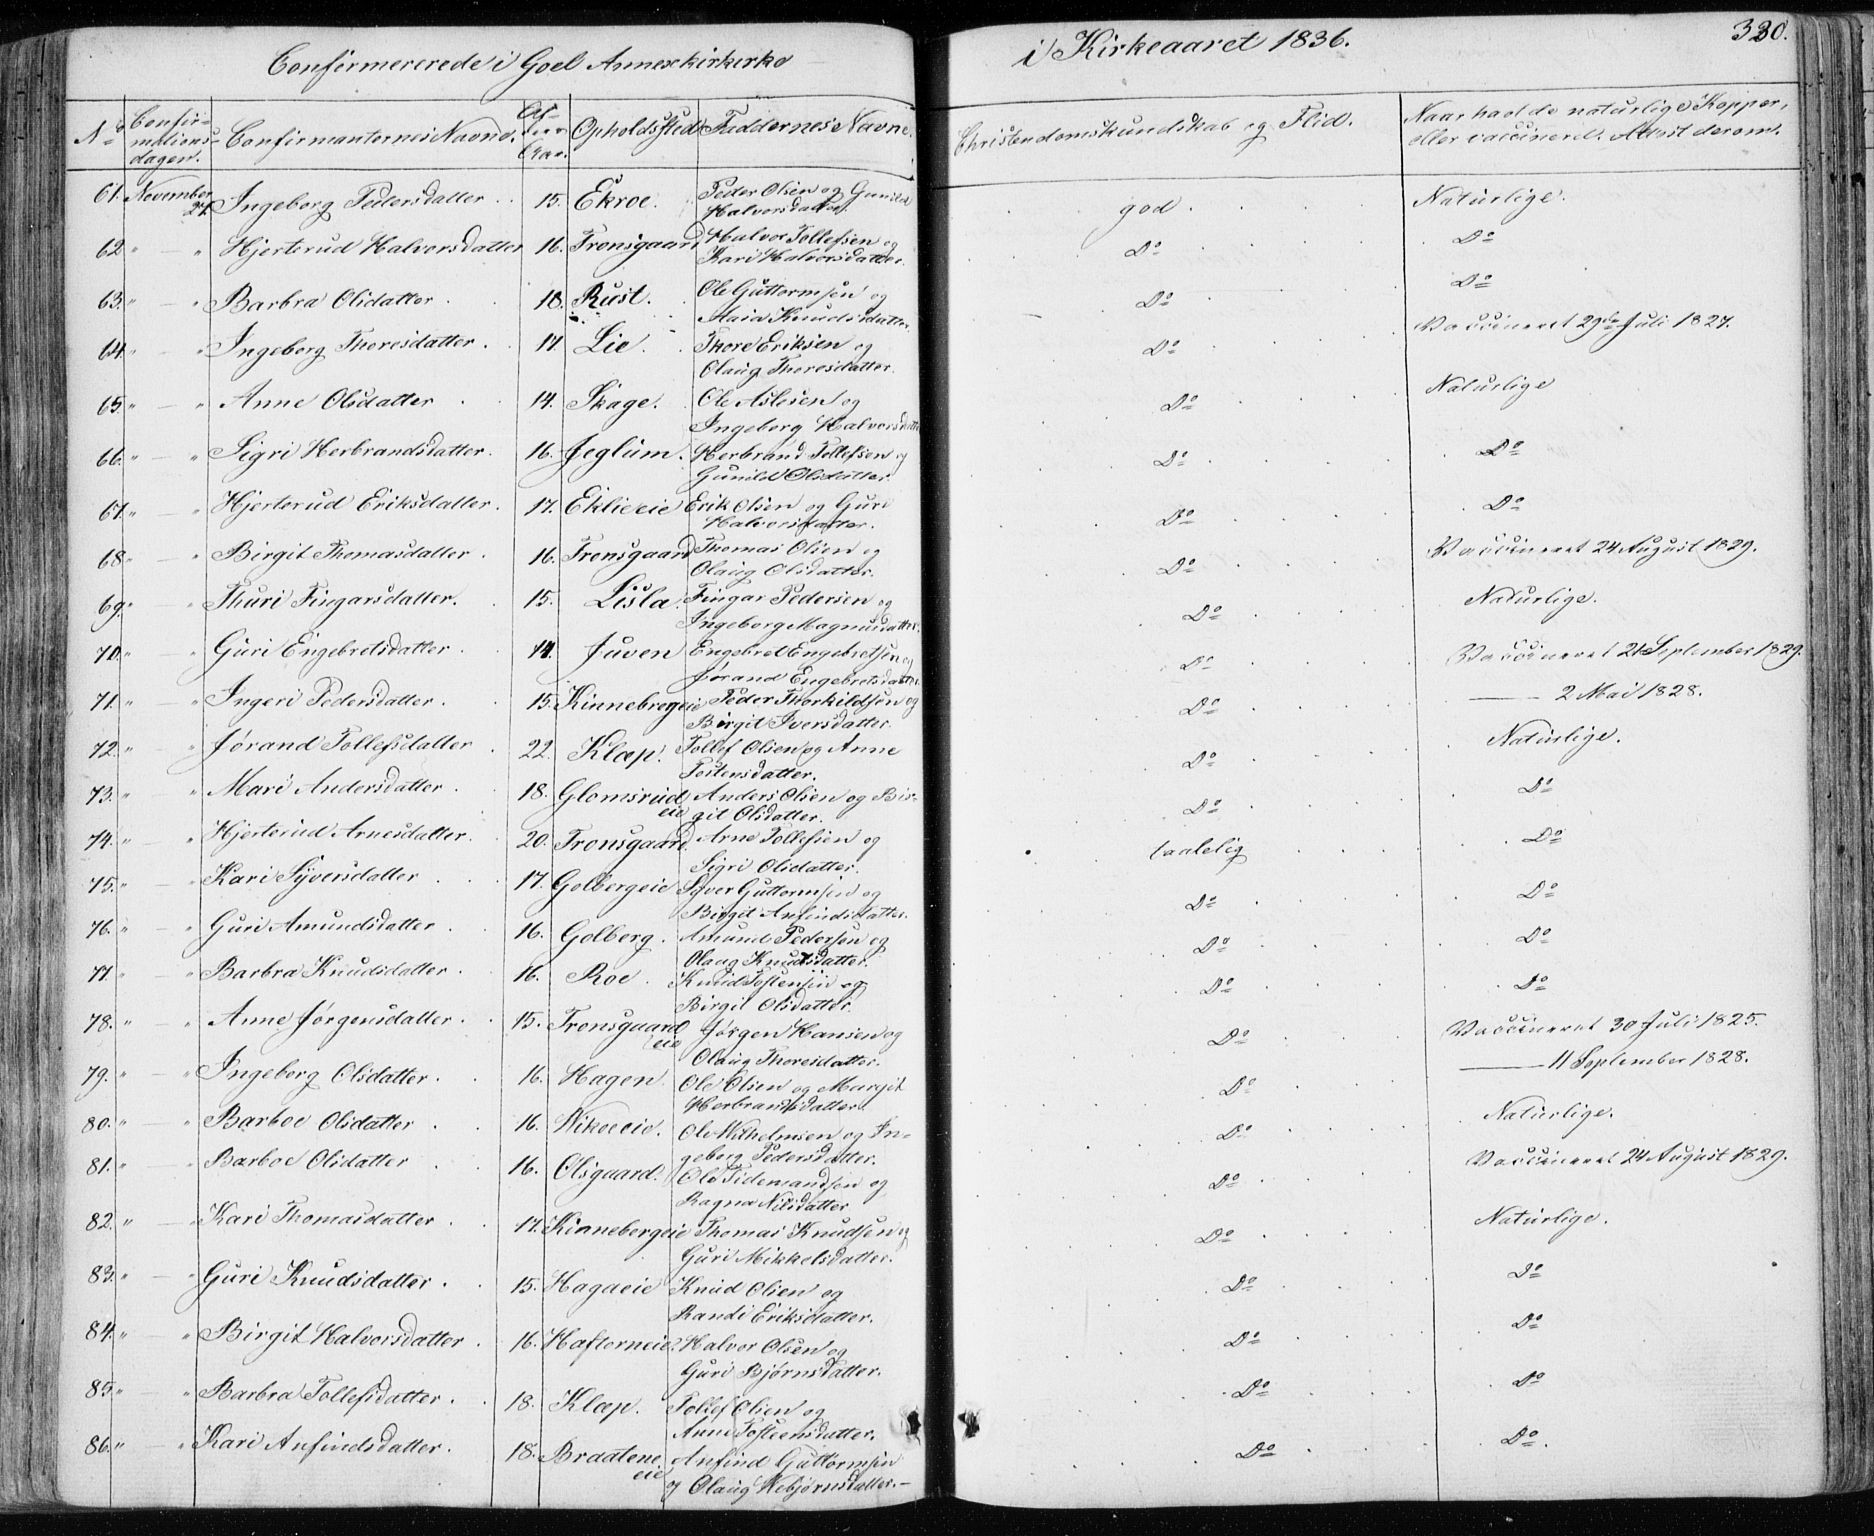 Confirmererede i Goel Annexkirkirke
i Kirkeaaret 1836.
330.
No
Confirmationsdagen.
Confirmanternes Navne.
Alder Aar.
Opholdssted
Fæddernes Navne.
Christendomskundskab og Flid.
Naar havt de naturlige Kopper, eller vaccineret. Attest derom.
61. November 27. Ingeborg Pedersdatter 15. Ekroe. Peder Olsen og Gunild Halvorsdatter. god. Naturlige.
62 " — " Hjerterud Halvorsdatter 16. Tronsgaard Halvor Tollefsen og Kari Halvorsdatter. Do Do
63. " — " Barbra Olsdatter 18. Rust. Ole Guttormsen og Knudsdatter. Do Do
64. " — " Ingeborg Thoresdatter 17. Lie. Thore Eriksen og Olaug Thoresdatter. Do Vaccineret 29de Juli 1827.
65. " — " Anne Olsdatter 14. Skage. Ole Aslesen og Ingeborg Halvorsdatter Do Naturlige
66. " — " Sigri Herbrandsdatter. 16. Jeglum. Herbrand Tollefsen og Gunild Olsdatter. Do Do
67. " — " Hjerterud Eriksdatter. 17. Eklieeie Erik Olsen og Guri Halvorsdatter. Do Do
68 " — " Birgit Thomasdatter 16. Tronsgaard Thomas Olsen og Olaug Olsdatter. Do Vaccineret 24 August 1829.
69. " — " Thuri Fingarsdatter. 15. Lisla. Fingar Pedersen og Ingeborg Magnusdatter. Do Naturlige.
70. " — " Guri Engebretsdatter 14. Juven Engebret Engebretsen og Jørand Engebretsdatter Do Vaccineret 21 September 1829.
71. " — " Ingeri Pedersdatter. 15. Kinnebregeie Peder Thorkildsen og Birgit Iversdatter. Do — 2 Mai 1828.
72. " — " Jørand Tollefsdatter 22. Klæp. Tollef Olsen og Anne Tostensdatter. Do Naturlige.
73. " — " Mari Andersdatter 18. Glomsrud eie Anders Olsen og Birgit Olsdatter. Do Do
74. " — " Hjerterud Arnesdatter. 20. Tronsgaard Arne Tollefsen og Sigri Olsdatter. taalelig Do
75. " — " Kari Syversdatter 17. Golbergeie Syver Guttormsen og Birgit Anfindsdatter. Do Do
76. " — " Guri Amundsdatter 16. Golberg. Amund Pedersen og Olaug Knudsdatter. Do Do
77. " — " Barbra Knudsdatter 16. Roe. Knud Tostensen og Birgit Olsdatter. Do Do
78. " — " Anne Jørgensdatter. 15. Tronsgaard eie Jørgen Hansen og Olaug Thoresdatter. Do Vaccineret 30 Juli 1825.
79. " — " Ingeborg Olsdatter. 16. Hagen. Ole Olsen og Margit Herbrandsdatter. Do — 11 September 1828.
80. " — " Barboe Olsdatter 16. Wikeeie. Ole Wilhelmsen og Ingeborg Pedersdatter. Do Naturlige.
81. " — " Barboe Olsdatter 16. Olsgaard. Ole Tidemandsen og Ragna Nilsdatter Do Vaccineret 24 August 1829.
82. " — " Kari Thomasdatter 17. Kinnebergeie Thomas Knudsen og Guri Mikkelsdatter. Do Naturlige.
83. " — " Guri Knudsdatter. 15. Hagaeie Knud Olsen og Randi Eriksdatter. Do Do
84. " — " Birgit Halvorsdatter 16. Haftorneie. Halvor Olsen og Guri Bjørnsdatter. Do Do
85. " — " Barbra Tollefsdatter. 18. Klæp. Tollef Olsen og Anne Tosteensdatter. Do Do
86. " — " Kari Anfindsdatter. 18. Braatene eie Anfind Guttormsen og Olaug Webjørnsdatter.— Do Do.